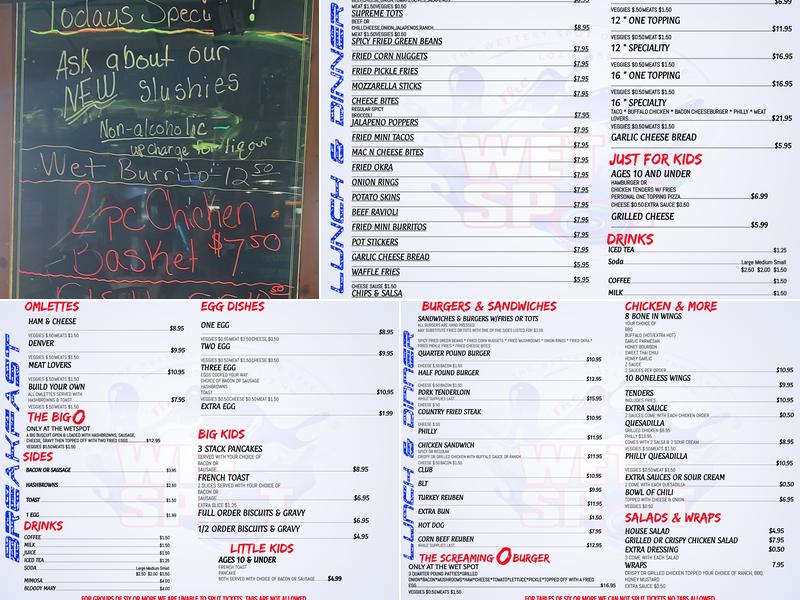 Todays Speci !
Ask about our
NEW Slushies
Non-alcoholic
upcharge for liqour
Wet Burrito - 12 50
2 pc Chicken
Basket $7 50
LUNCH & DINNER
MEAT $1.50VEGGIES $0.50
SUPREME TOTS
BEEF OR
CHILI,CHEESE,ONION,JALAPENOS,RANCH $8.95
MEAT $1.50VEGGIES $0.50
SPICY FRIED GREEN BEANS
$7.95
FRIED CORN NUGGETS
$7.95
FRIED PICKLE FRIES
$7.95
MOZZARELLA STICKS
$7.95
CHEESE BITES
REGULAR SPICY
BROCCOLI $7.95
JALAPENO POPPERS
$7.95
FRIED MINI TACOS
$7.95
MAC N CHEESE BITES
$7.95
FRIED OKRA
$7.95
ONION RINGS
$7.95
POTATO SKINS
$7.95
BEEF RAVIOLI
$7.95
FRIED MINI BURRITOS
$7.95
POT STICKERS
$7.95
GARLIC CHEESE BREAD
$5.95
WAFFLE FRIES
$5.95
CHEESE SAUSE $1.50
CHIPS & SALSA
WET
SPOT
$6.99
VEGGIES $.50MEATS $1.50
12 " ONE TOPPING
$11.95
VEGGIES $.50MEATS $1.50
12 " SPECIALITY
$16.95
VEGGIES $.50MEATS $1.50
16 " ONE TOPPING
$16.95
VEGGIES $0.50MEATS $1.50
16 " SPECIALTY
TACO * BUFFALO CHICKEN * BACON CHEESEBURGER * PHILLY * MEAT
LOVERS $21.95
VEGGIES $0.50MEATS $1.50
GARLIC CHEESE BREAD
$5.95
JUST FOR KIDS
AGES 10 AND UNDER
HAMBURGER OR
CHICKEN TENDERS W/ FRIES
PERSONAL ONE TOPPING PIZZA $6.99
CHEESE $0.50EXTRA SAUCE $0.50
GRILLED CHEESE
$5.99
DRINKS
ICED TEA $1.25
Soda Large Medium Small
$2.50 $2.00 $1.50
COFFEE $1.50
MILK $1.50
BREAKFAST
OMLETTES
HAM & CHEESE
$8.95
VEGGIES $0.50MEATS $1.50
DENVER
$9.95
VEGGIES $0.50MEATS $1.50
MEAT LOVERS
$10.95
VEGGIES $0.50MEATS $1.50
BUILD YOUR OWN
ALL OMLETTES SERVED WITH
HASHBROWNS & TOAST $7.95
VEGGIES $0.50MEATS $1.50
THE BIG O
ONLY AT THE WETSPOT
A BIG BUSCUIT OPEN & LOADED WITH HASHBROWNS, SAUSAGE,
CHEESE, GRAVY THEN TOPPED OFF WITH TWO FRIED EGGS $12.95
VEGGIES $0.50MEATS $1.50
SIDES
BACON OR SAUSAGE $3.95
HASHBROWNS $2.50
TOAST $1.50
1 EGG $1.99
DRINKS
COFFEE $1.50
MILK $1.50
JUICE $1.50
ICED TEA $1.25
SODA Large Medium Small
$2.50 $2.00 $1.50
MIMOSA $4.00
BLOODY MARY $4.00
EGG DISHES
ONE EGG
$8.95
VEGGIES $0.50MEATS $1.50CHEESE $0.50
TWO EGG
$9.95
VEGGIES $0.50MEATS $1.50CHEESE $0.50
THREE EGG
EGGS COOKED YOUR WAY.
CHOICE OF BACON OR SAUSAGE
HASHBROWNS
TOAST $10.95
VEGGIES $0.50CHEESE $0.50MEATS $1.50
EXTRA EGG
$1.99
BIG KIDS
3 STACK PANCAKES
SERVED WITH YOUR CHOICE OF
BACON OR
SAUSAGE $8.95
FRENCH TOAST
2 SLICES SERVED WITH YOUR CHOICE OF
BACON OR
SAUSAGE $6.95
EXTRA SLICE $1.25
FULL ORDER BISCUITS & GRAVY
$6.95
1/2 ORDER BISCUITS & GRAVY
$4.95
LITTLE KIDS
AGES 10 & UNDER
FRENCH TOAST
PANCAKE
BOTH SERVED WITH CHOICE OF BACON OR SAUSAGE $4.99
FOR GROUPS OF SIX OR MORE WE ARE UNABLE TO SPLIT TICKETS. TABS ARE NOT ALLOWED
LUNCH & DINNER
BURGERS & SANDWICHES
SANDWICHES & BURGERS W/FRIES OR TOTS
ALL BURGERS ARE HAND PRESSED
ANY SUBSTITUTE FRIES OR TOTS WITH ONE OF THE SIDES LISTED FOR $3.00
SPICY FRIED GREEN BEANS * FRIED CORN NUGGETS * FRIED MUSHROOMS * ONION RINGS * FRIED OKRA *
FRIED PICKLE FRIES * FRIED CHEESE BITES
QUARTER POUND BURGER
$10.95
CHEESE $.50BACON $1.50
HALF POUND BURGER
$12.95
CHEESE $.50BACON $1.50
PORK TENDERLOIN
WHILE SUPPLIES LAST. $15.95
CHEESE $.50
COUNTRY FRIED STEAK
$10.95
CHEESE $.50
PHILLY
$11.95
CHICKEN SANDWICH
SPICY OR REGULAR
CRISPY OR GRILLED CHICKEN WITH BUFFALO SAUCE OR RANCH $11.95
CHEESE $.50BACON $1.50
CLUB
$10.95
BLT
$9.95
TURKEY REUBEN
$11.95
EXTRA BUN
$1.50
HOT DOG
$7.95
CORN BEEF REUBEN
WHILE SUPPLIES LAST. $12.95
THE SCREAMING O BURGER
ONLY AT THE WET SPOT
3 QUARTER POUND PATTIES*GRILLED
ONION*BACON*MUSHROOMS*HAM*CHEESE*TOMATO*LETTUCE*PICKLE*TOPPED OFF WITH A FRIED
EGG $16.95
VEGGIES $0.50MEATS $1.50
CHICKEN & MORE
8 BONE IN WINGS
YOUR CHOICE OF
BBQ
BUFFALO (HOT/EXTRA HOT)
GARLIC PARMESAN
HONEY BOURBON
SWEET THAI CHILI
HONEY GARLIC
2 SAUCE
2 SAUCES PER ORDER $10.95
10 BONELESS WINGS
$9.95
TENDERS
INCLUDES FRIES $10.95
EXTRA SAUCE
2 SAUCES COME WITH EACH CHICKEN ORDER $0.50
QUESADILLA
GRILLED CHICKEN $9.95
PHILLY $13.95
COMES WITH 2 SALSA & 2 SOUR CREAM $8.95
VEGGIES $0.50MEATS $1.50
PHILLY QUESADILLA
$10.95
VEGGIES $0.50MEAT $1.50
EXTRA SAUCES OR SOUR CREAM
2 COME WITH EACH QUESADILLA $0.50
BOWL OF CHILI
TOPPED WITH CHEESE & ONION $6.95
VEGGIES $0.50
SALADS & WRAPS
HOUSE SALAD $4.95
GRILLED OR CRISPY CHICKEN SALAD $7.95
EXTRA DRESSING $0.50
3 COME WITH EACH SALAD
WRAPS 7.95
CRISPY OR GRILLED CHICKEN TOPPED YOUR CHOICE OF RANCH, BBQ,
HONEY MUSTARD
EXTRA SAUCE $0.50
FOR TABLES OF SIX OR MORE WE CAN NOT SPLIT TICKETS NO TABS ALLOWED